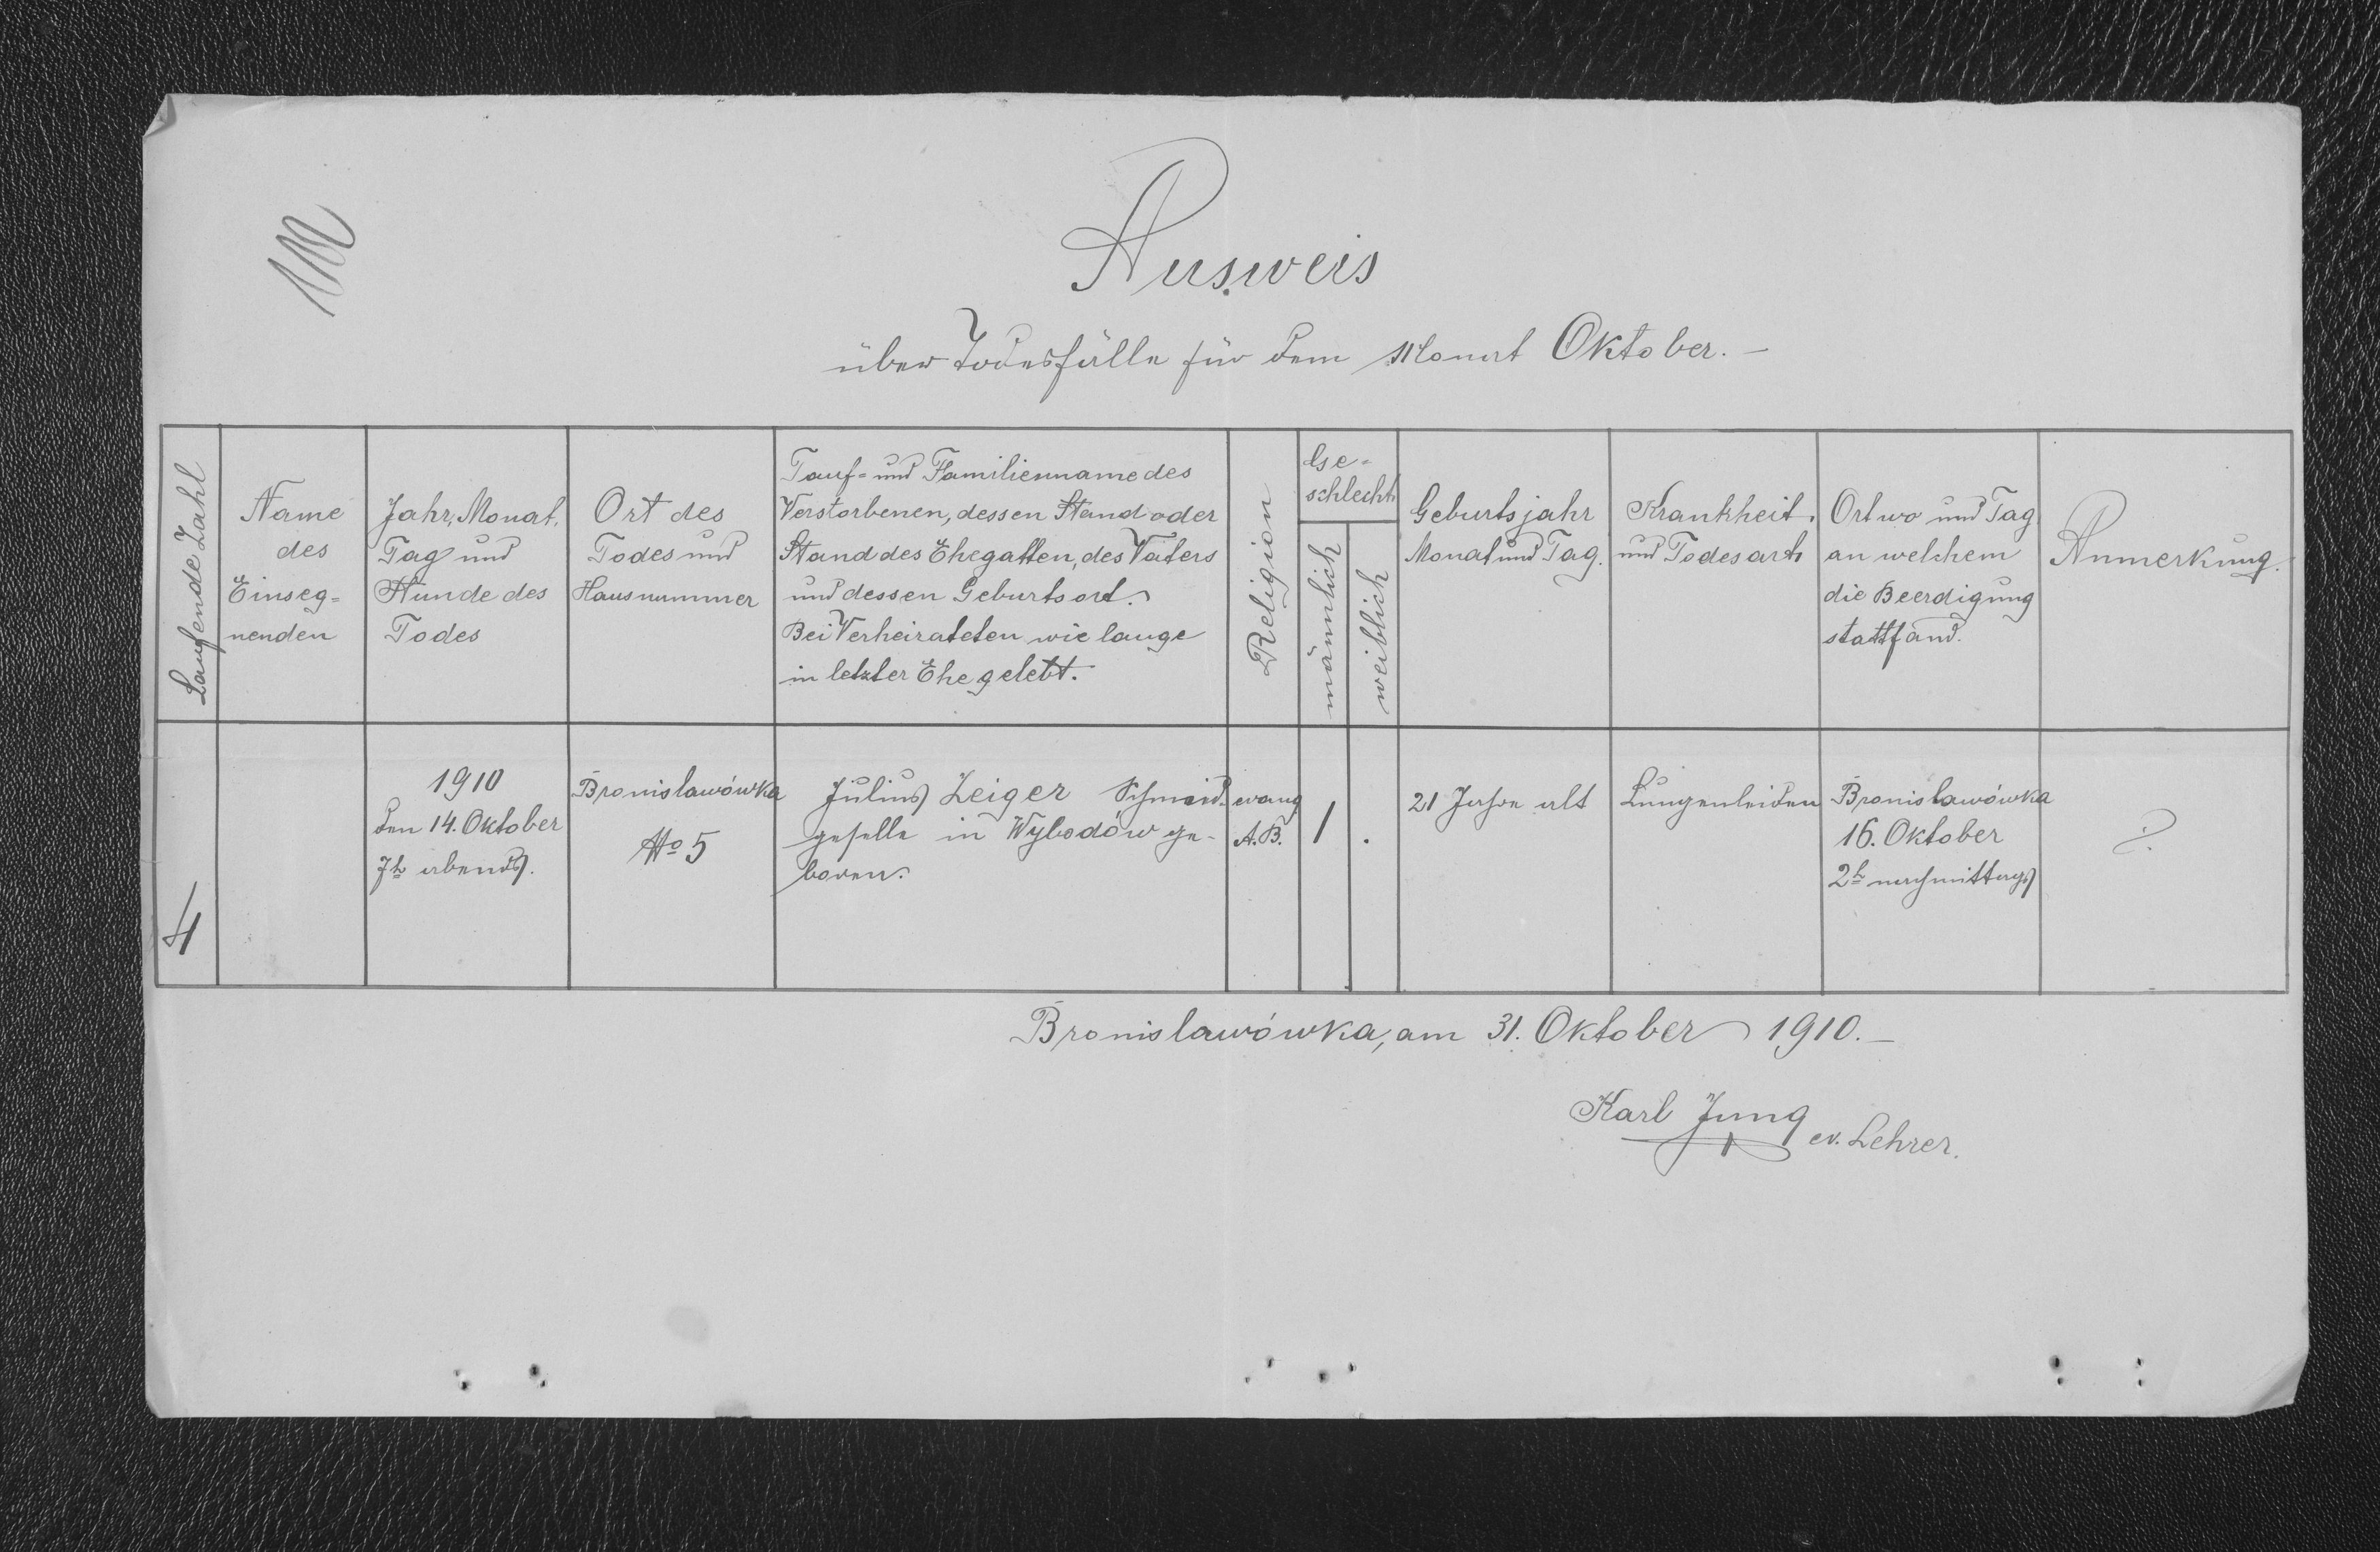 Ausweis
über Todesfälle für dem Monat Oktober.—
Laufende Zahl
Name
des
Einseg=
nenden
Jahr, Monat,
Tag und
Stunde des
Todes
Ort des
Todes und
Hausnummer
Tauf= und Familienname des
Verstorbenen, dessen Stand oder
Stand des Ehegatten, des Vaters
und dessen Geburtsort.
Bei Verheirateten wie lange
in letzter Ehe gelebt.
Religion
Ge=
schlecht
männlich
weiblich
Geburtsjahr
Monat und Tag.
Krankheit.
und Todesart
Ort wo und Tag
an welchem
die Beerdigung
stattfand.
Anmerkung.
4
1910
den 14. Oktober
7h abends.
Bronislawówka
No 5
Julius Zeiger Schmied-
geselle in Wybodów ge-
boren.
evang
A.B.
1
.
21 Jahre alt
Lungenleiden
Bronislawówka
16. Oktober
2h nachmittags
?
Bronislawówka, am 31. Oktober 1910.—
Karl Jung
ev. Lehrer.